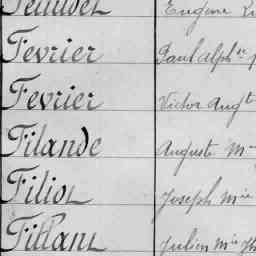 Fevrier Paul Alph
Fevrier Victor Augt
Filande Auguste Mie
Filiol Joseph Mie
Fillant Julien Mie